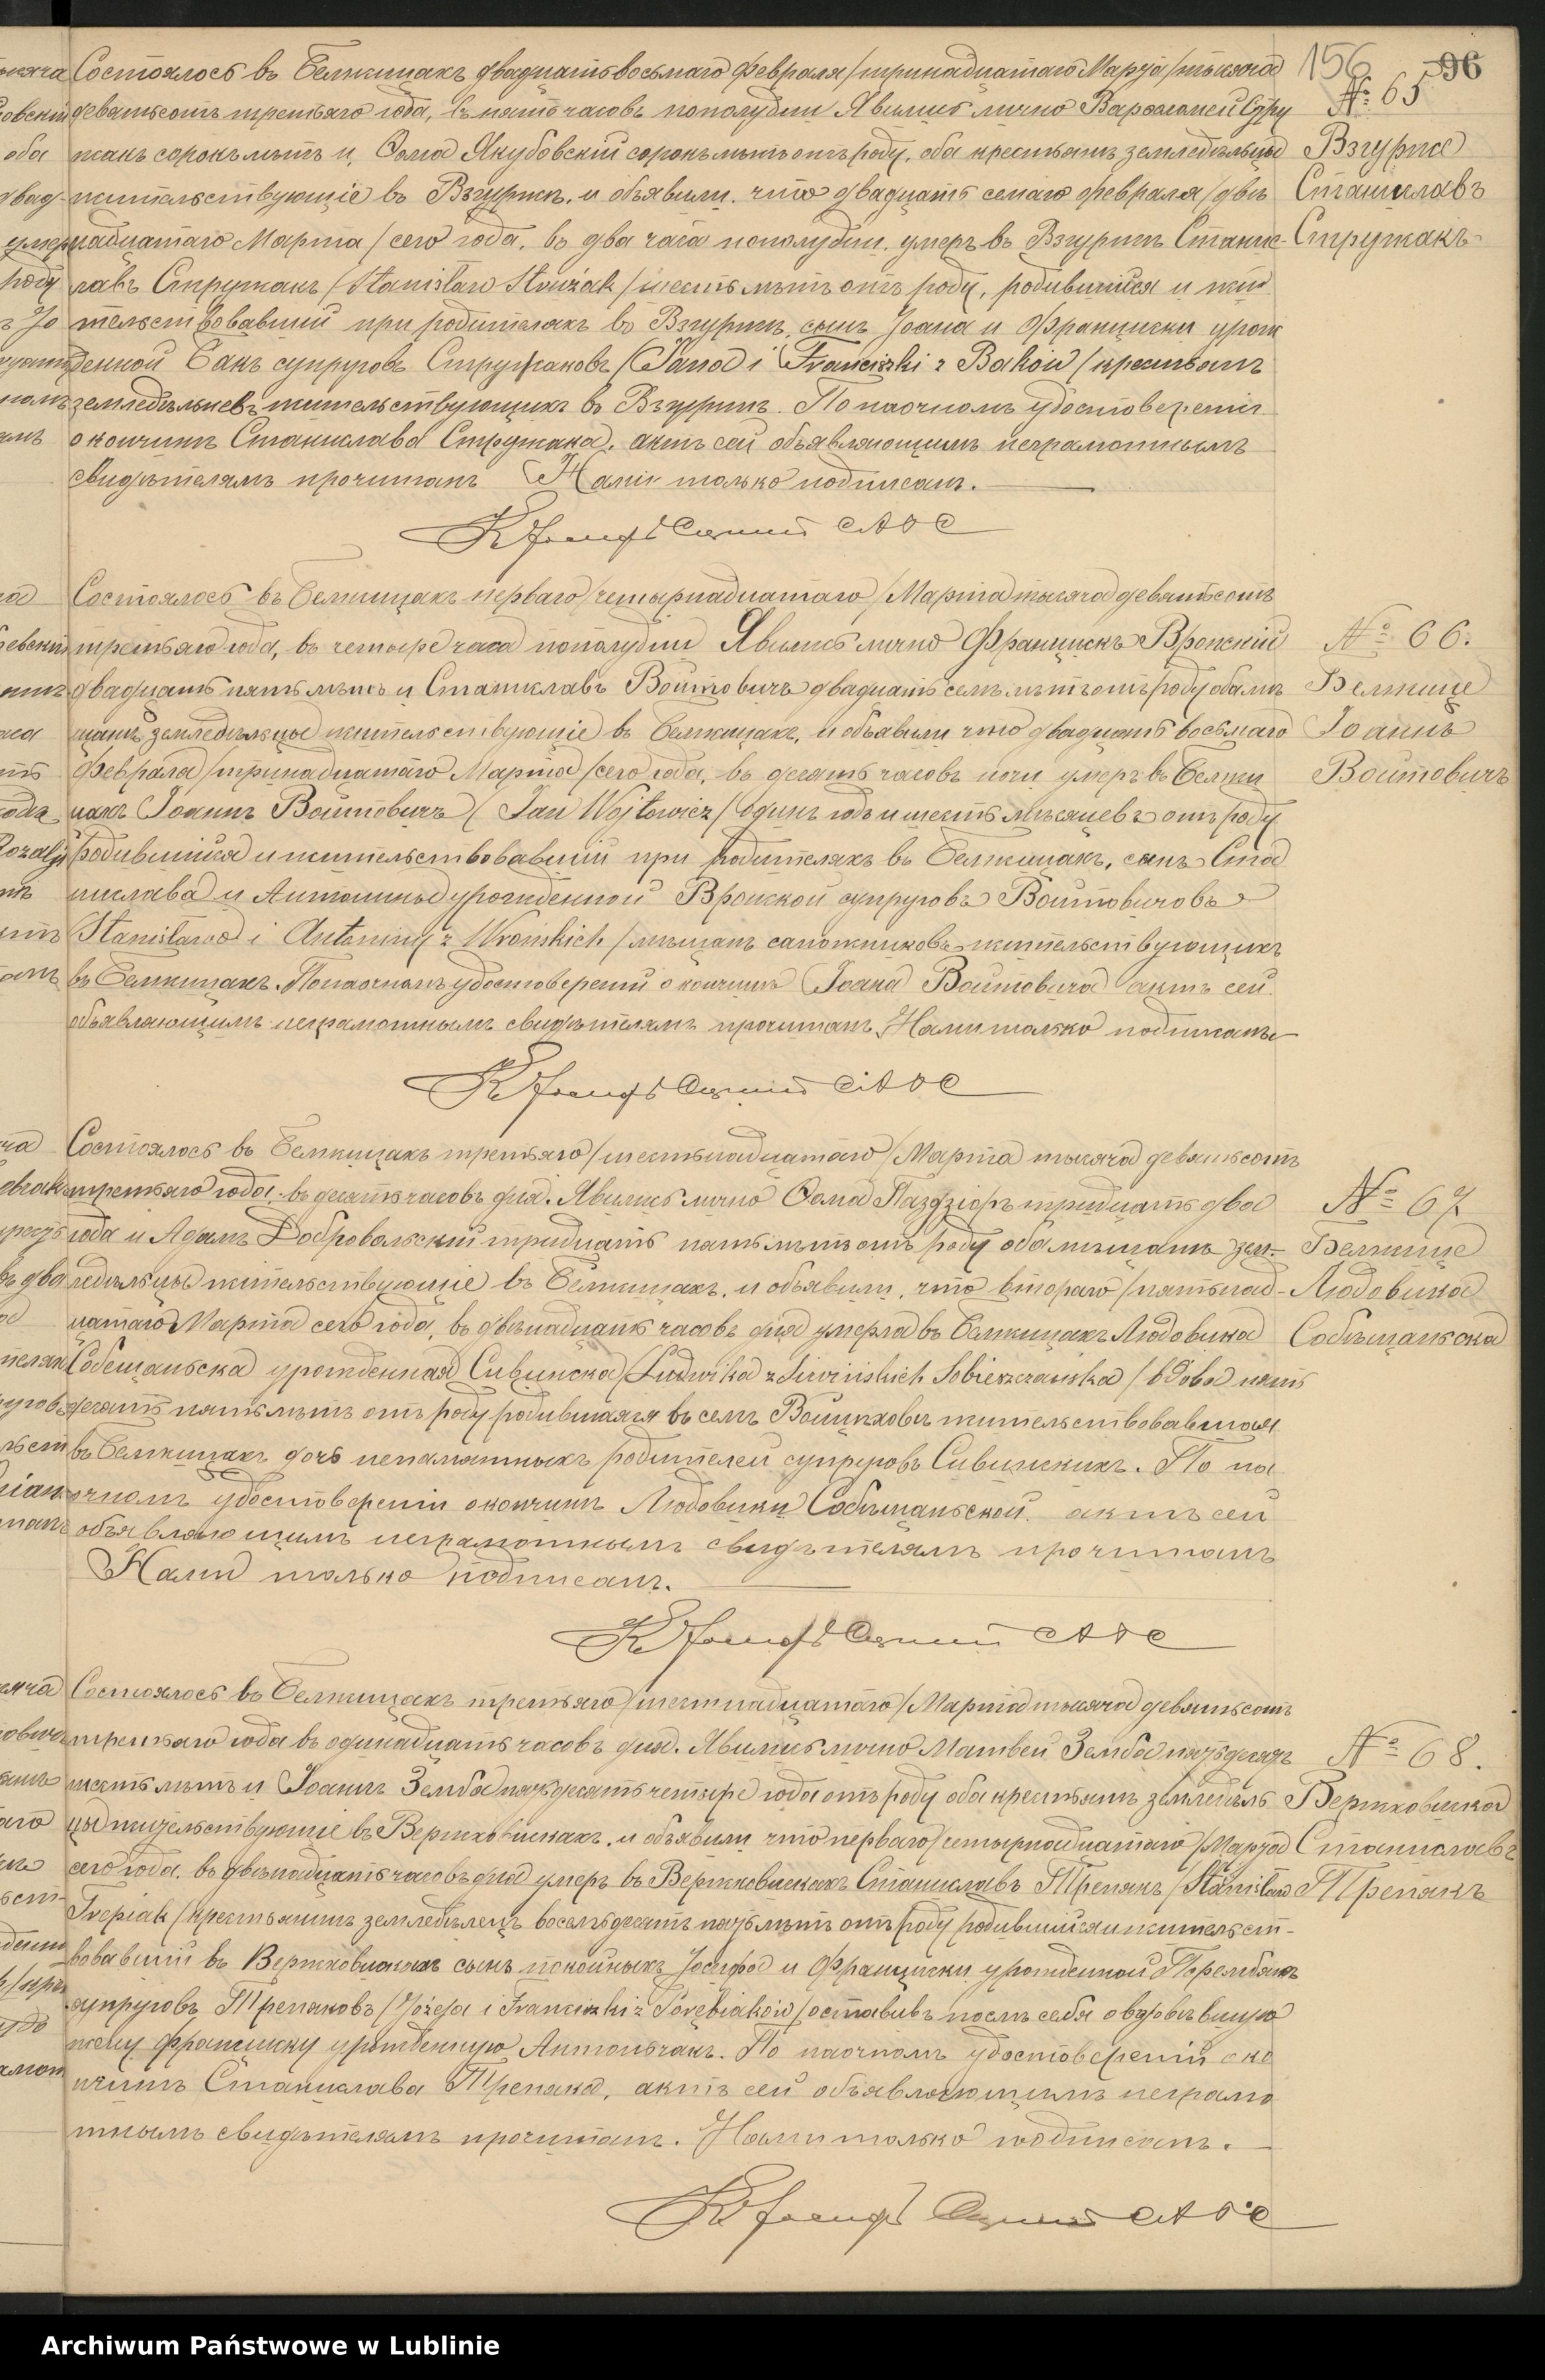 156 96
Состоялось въ Белжицахъ двадцать восьмаго Февраля /тринадцатаго Марта/ тысяча
девятьсотъ третьяго года, въ пять часовъ пополудни. Явились лично Варѳоломей Стру
жакъ сорокъ лѣтъ и Ѳома Якубовскій сорокъ лѣтъ отъ роду, оба крестьяне земледѣльцы
жительствующіе въ Взгуржѣ, и объявили, что двадцать седьмаго февраля /двѣ
надцатаго Марта/ сего года, въ два часа пополудни, умеръ въ Взгуржѣ Станис-
лавъ Стружакъ /Stanisław Strużak/ шесть лѣтъ отъ роду, родившійся и жи
тельствовавшій при родителяхъ въ Взгуржѣ, сынъ Іоана и Франциски урож
денной Бакъ супруговъ Стружаковъ /Jana i Franciszki z Baków/ крестьянъ
земледѣльцевъ жительствующихъ въ Взгуржѣ. По наочномъ удостовереніи
о кончинѣ Станислава Стружака, актъ сей объявляющимъ неграмотнымъ
свидѣтелямъ прочитанъ Нами только подписанъ.
№ 65
Взгурже
Станиславъ
Стружакъ
Состоялось въ Белжицахъ перваго /четырнадцатаго/ Марта тысяча девятьсотъ
третьяго года, въ четыре часа пополудни Явились лично Францискъ Вронскій
двадцать пять лѣтъ и Станиславъ Войтовичъ двадцать семь лѣтъ отъ роду оба мѣ
щане земледѣльцы жительствующіе въ Белжицахъ, и объявили что двадцать восьмаго
Февраля /тринадцатаго Марта/ сего года, въ десять часовъ ночи умеръ въ Белжи
цахъ Іоаннъ Войтовичъ /Jan Wojtowicz/ одинъ годъ и шесть мѣсяцевъ отъ роду
родившійся и жительствовавшій при родителяхъ въ Белжицахъ, сынъ Ста
нислава и Антонины урожденной Вронской супруговъ Войтовичовъ
Stanisława i Antoniny z Wrońskich /мѣщанъ сапожниковъ жительствующихъ
въ Белжицахъ. По наочномъ удостовереніи о кончинѣ Іоана Войтовича актъ сей
объявляющимъ неграмотнымъ свидѣтелямъ прочитанъ, Нами только подписанъ
№ 66.
Белжице
Іоаннъ
Войтовичъ
Состоялось въ Белжицахъ третьяго /шестнадцатаго/ Марта тысяча девятьсотъ
третьяго года въ десять часовъ дня. Явились лично Ѳома Паздзіоръ тридцать два
года и Адамъ Добровольскій тридцать пять лѣтъ отъ роду оба мѣщане зем-
ледѣльцы жительствующіе въ Белжицахъ, и объявили, что втораго /пятнад-
цатаго Марта сего года, въ двѣнадцать часовъ дня умерла въ Белжицахъ Людовика
Собещаньска урожденная Сивинска /Ludwika z Siwińskich Sobieszczańska/ вдова пять
десятъ пять лѣтъ отъ роду родившаяся въ селѣ жительствовавшая
въ Белжицахъ дочь непамятныхъ родителей супруговъ Сивинскихъ. По на
очномъ удостовереніи о кончинѣ Людовики Собѣщаньской, актъ сей
объявляющимъ неграмотнымъ свидѣтелямъ прочитанъ
Нами только подписанъ.
№ 67
Белжице
Людовика
Собѣщаньска
Состоялось въ Белжицахъ третьяго /шестнадцатаго/ Марта тысяча девятьсотъ
третьяго года въ одинадцать часовъ дня. Явились лично Матвей Земба пятьдесятъ
шесть лѣтъ и Іоаннъ Земба пятьдесятъ четыре года отъ роду оба крестьяне земледѣль
цы жительствующіе въ Вержховискахъ, и объявили что перваго /четырнадцатаго/ Марта
сего года, въ двѣнадцать часовъ дня умеръ въ Вержховискахъ Станиславъ Трепякъ /Stanisław
Trepiak/ крестьянинъ земледѣлецъ восемьдесятъ пять лѣтъ отъ роду родившійся и жительст-
вовавшій въ Вержховискахъ сынъ покойныхъ Іосифа и Франциски урожденной Порембякъ
супруговъ Трепяковъ /Józefa i Franciszki z Porębiaków/ оставивъ послѣ себя овдовѣвшую
жену Франциску урожденную Антоньчакъ. По наочномъ удостовереніи о ко
нчинѣ Станислава Трепяка, актъ сей объявляющимъ неграмо
тнымъ свидѣтелямъ прочитанъ. Нами только подписанъ.
№ 68.
Вержховиска
Станиславъ
Трепякъ
Archiwum Państwowe w Lublinie